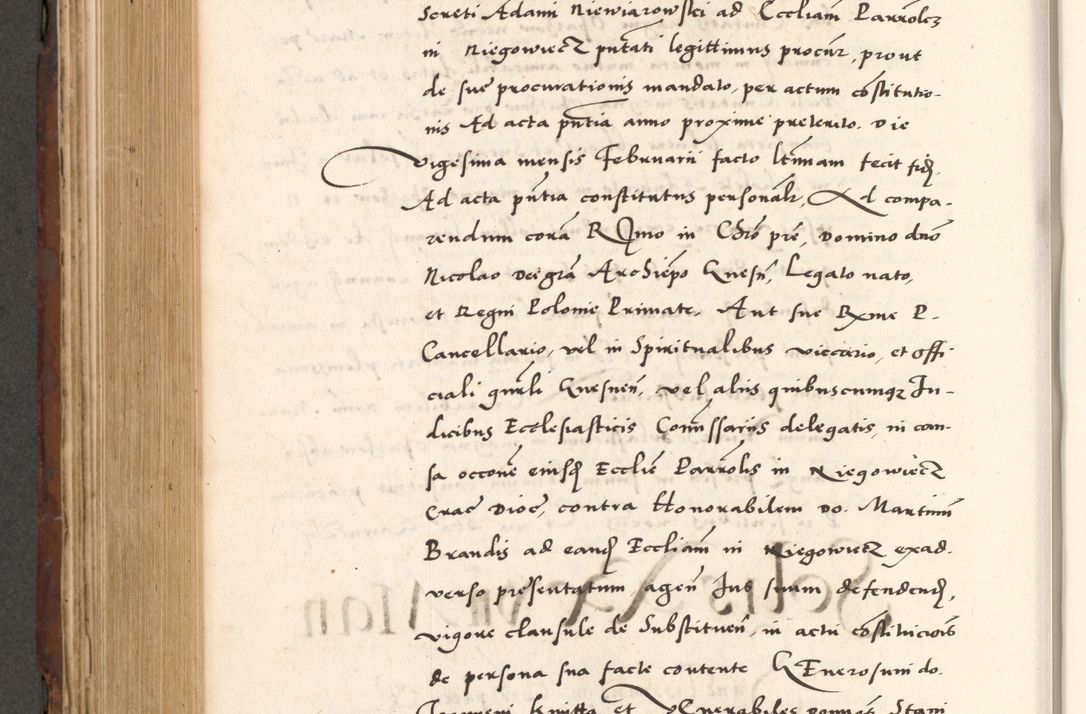 Screti Adami Niewiarowski ad Eccliam Parrolcz
in Niegowiecz pntati legittimus procur, prout
de sue procurationis mandato, per actum costitutio-
nis Ad acta pntia anno proxime preterito. Die
vigesima mensis Februarii facto ltimam fecit fid.
Ad acta pntia constitutus personalr, Ad compa-
rendum cora Rmo in Chro pre, Domino dno
Nicolao Dei gra Archiepo Gnesn, Legato nato,
et Regni Polonie Primate. Aut sue Rxme P.
Cancellario, vel in Spiritualibus viccario, et offi
ciali gnrli Gnesnen, vel aliis quibuscumqz Iu-
dicibus Ecclesiasticis Comissariis delegatis, in cau-
sa occone eiusd Ecclie Parrolis in Niegowiecz
Crac Dioc, contra Honorabilem Do. Martinu
Brandis ad eand Eccliam in Niegowiecz exad-
verso presentatum agen Ius suum defendend,
vigore clausule de Substituen, in actu costituciois
de persona sua facte contente GEnerosum do.
et VEnerabiles Stani